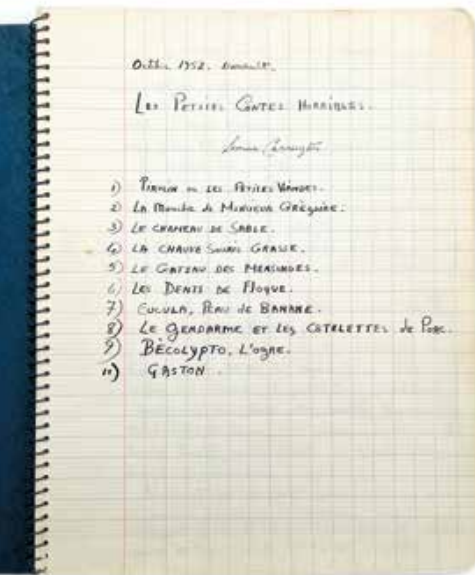 Octbre 1952.
Les Petits Contes Horribles.
Leonora Carrington
1) ou les Petites Viandes.
2) La Mouche de Monsieur Grégoire.
3) Le Chameau de Sable.
4) La Chauve Souris Grasse.
5) Le Gateau des Mensonges.
6) Les Dents de Floque.
7) Cucula, Peau de Banane.
8) Le Gendarme et les Cotelettes de Porc.
9) Bécolypto, L'ogre.
10) Gaston.